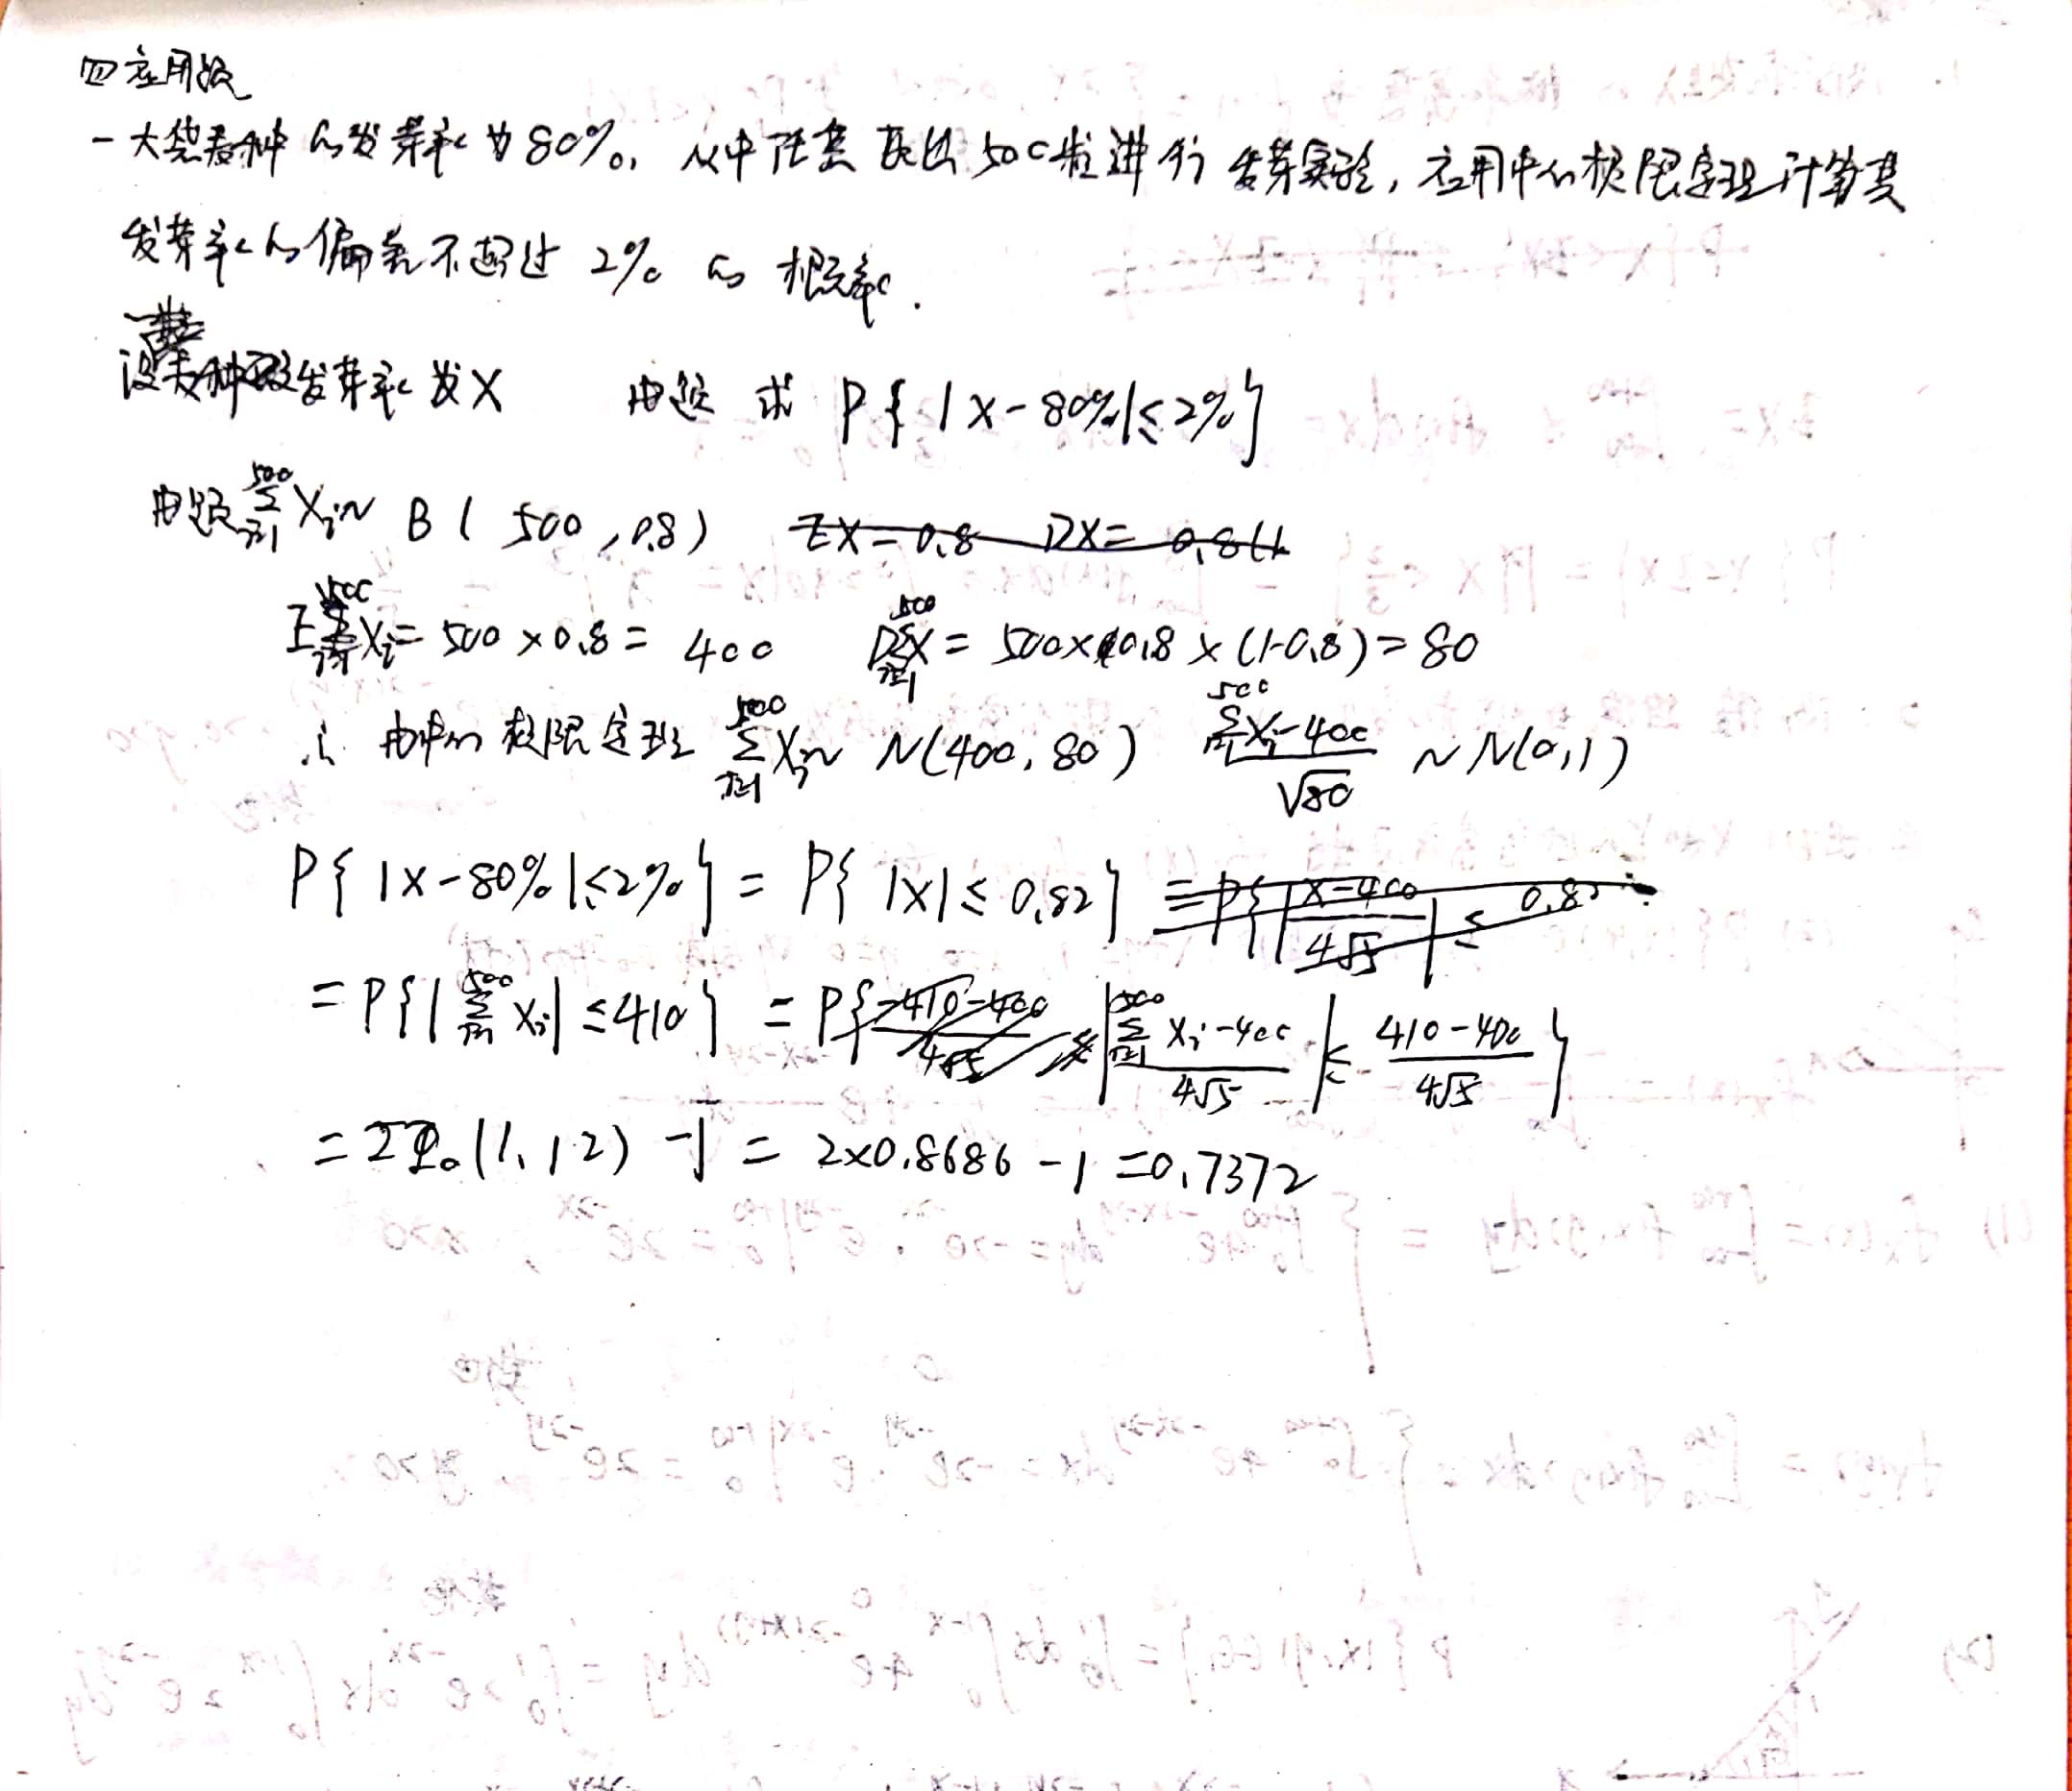 四 应用题
一大袋麦种的发芽率为80%, 从中任意取出500粒进行发芽实验, 应用中心极限定理计算其
发芽率的偏差不超过 2% 的概率.
设麦种发芽率为X 由题 求 P{|X-80%|≤2%}
由题 \sum_{i=1}^{500} X_i ~ B(500, 0.8) EX=0.8 DX=0.8(1
E\sum_{i=1}^{500} X_i = 500×0.8 = 400 D\sum_{i=1}^{500} X = 500×0.8×(1-0.8) = 80
∴ 由中心极限定理 \sum_{i=1}^{500} X_i ~ N(400, 80) \frac{\sum_{i=1}^{500} X_i-400}{\sqrt{80}} ~ N(0,1)
P{|X-80%|≤2%} = P{|X|≤0.82} = P{|\frac{X-400}{4\sqrt{5}}| ≤ 0.82
= P{|\sum_{i=1}^{500} X_i| ≤ 410} = P{\frac{-410-400}{4\sqrt{5}} ≤ |\frac{\sum_{i=1}^{500} X_i-400}{4\sqrt{5}}| ≤ \frac{410-400}{4\sqrt{5}}}
= 2Φ₀(1.12) -1 = 2×0.8686 -1 = 0.7372